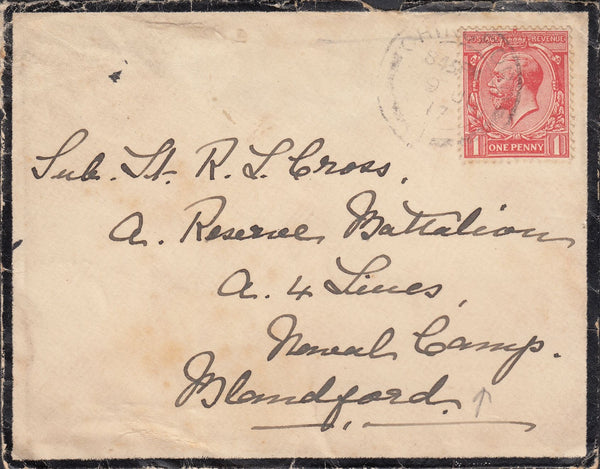 POSTAGE REVENUE
1 ONE PENNY 1
17
Sub. Lt. R. L. Cross,
A. Reserve Battalion
A. 4 Lines,
Naval Camp.
Blandford.